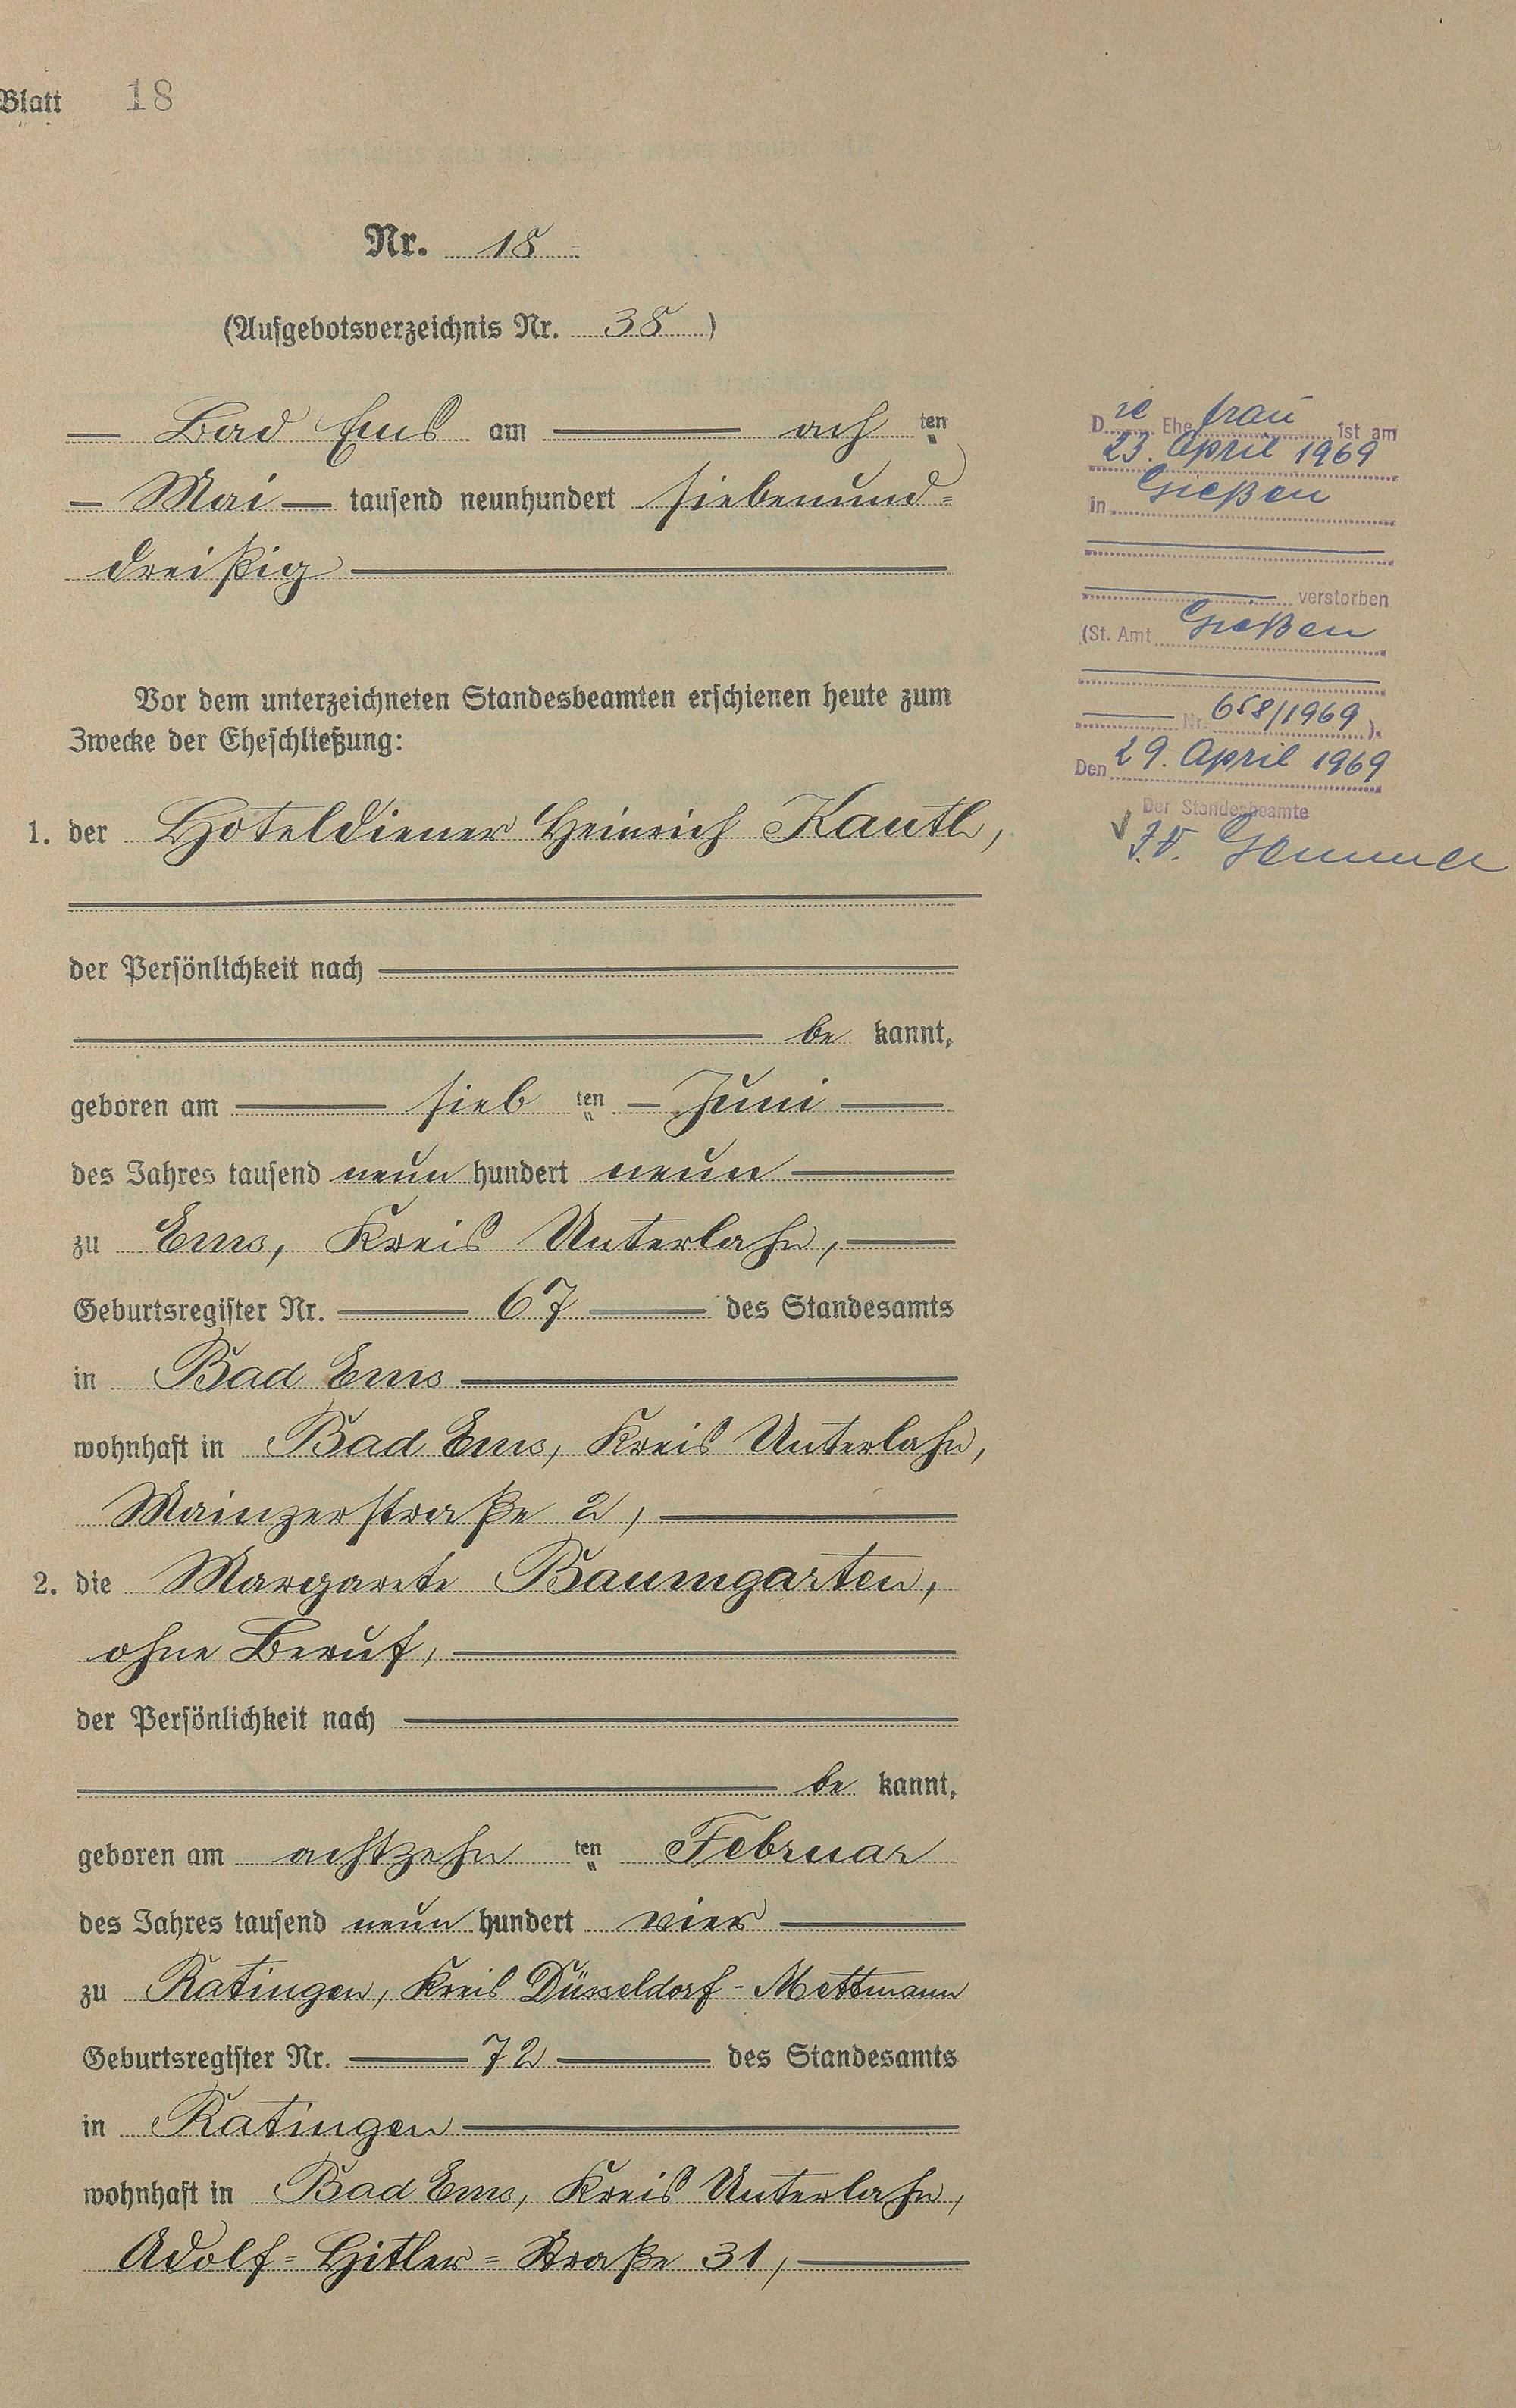 Blatt 18
Nr. 18
(Aufgebotsverzeichnis Nr. 38)
Bad Ems am ach ten
Mai tausend neunhundert siebenund=
dreißig
Vor dem unterzeichneten Standesbeamten erschienen heute zum
Zwecke der Eheschließung:
1. der Hoteldiener Heinrich Kauth,
der Persönlichkeit nach
be kannt,
geboren am sieb ten Juni
des Jahres tausend neun hundert neun
zu Ems, Kreis Unterlahn,
Geburtsregister Nr. 67 des Standesamts
in Bad Ems
wohnhaft in Bad Ems, Kreis Unterlahn,
Mainzerstraße 2,
2. die Margarete Baumgarten,
ohne Beruf,
der Persönlichkeit nach
be kannt,
geboren am achtzehn ten Februar
des Jahres tausend neun hundert vier
zu Ratingen, Kreis Düsseldorf-Mettmann
Geburtsregister Nr. 72 des Standesamts
in Ratingen
wohnhaft in Bad Ems, Kreis Unterlahn,
Adolf=Hitler=Straße 31,
Die Ehefrau ist am
23. April 1969
in Gießen
verstorben
(St. Amt Gießen
Nr. 658/1969).
Den 29. April 1969
Der Standesbeamte
I.V.